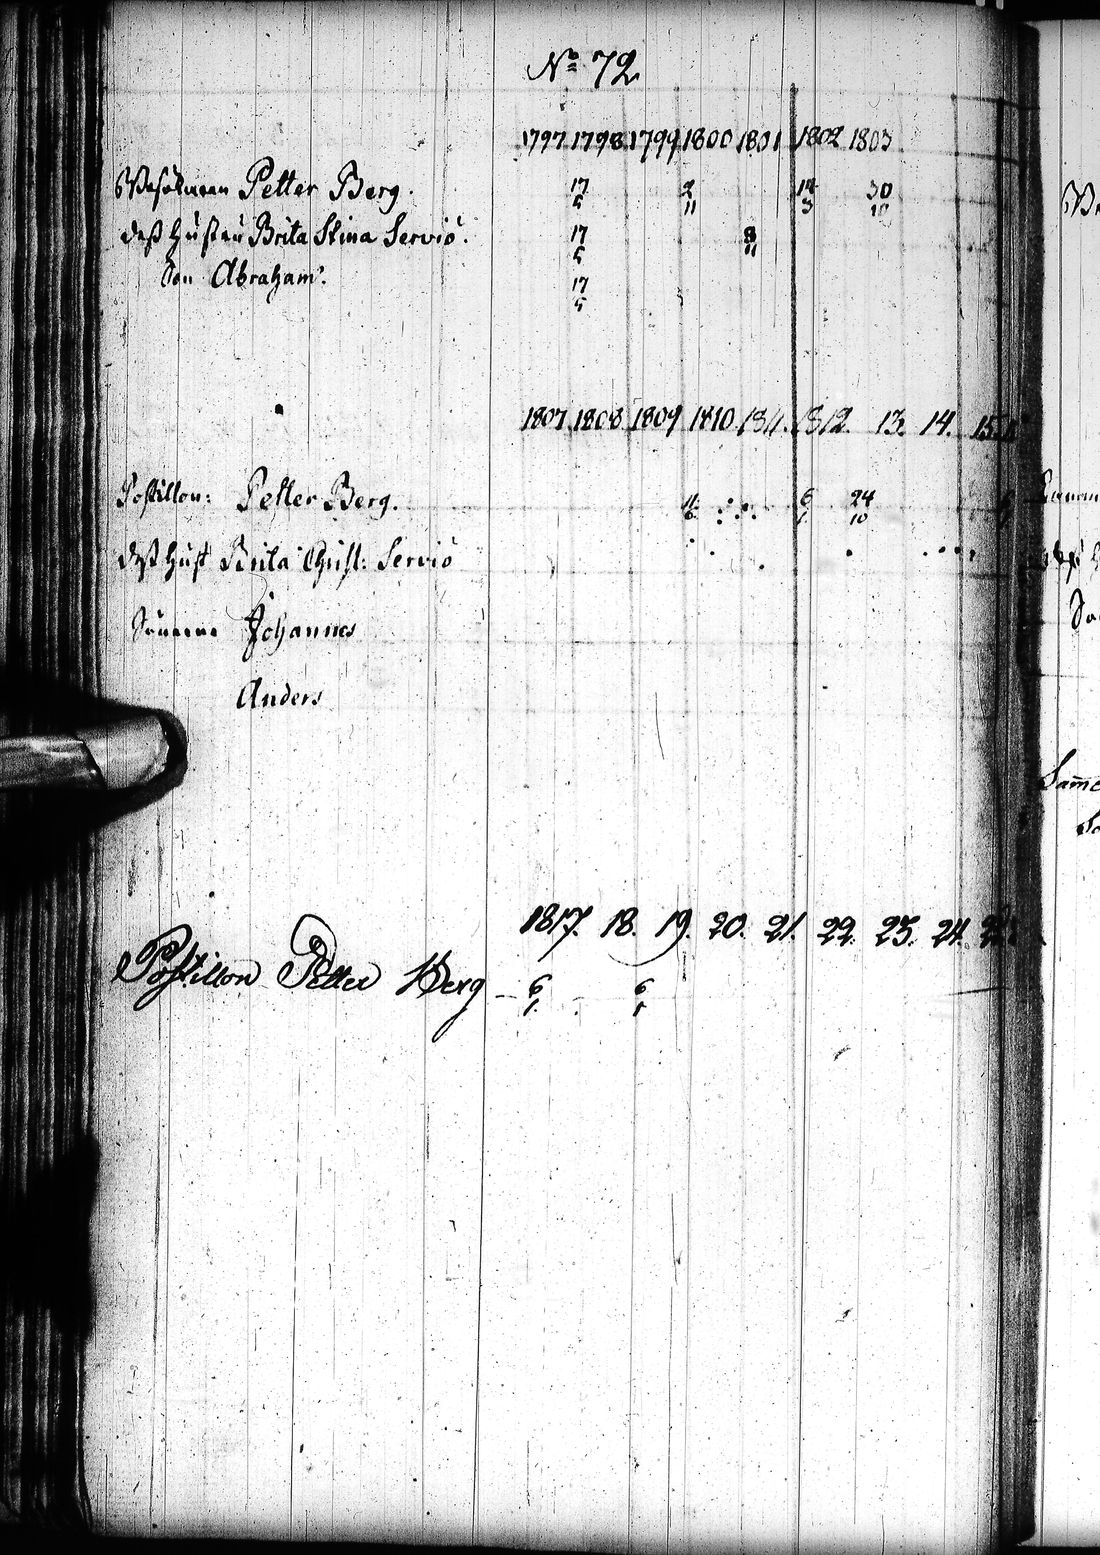 No 72
1797 1798 1799 1800 1801 1802 1803
Petter Berg. 17/5 2/11 14/3 30/10
deß Hustru Brita Stina Serviö. 17/5 8/11
Son Abraham. 17/5
1807 1808 1809 1810 1811. 1812. 13. 14. 15.
Postillon: Petter Berg. 6/1 24/10
deß Hust Brita Christ: Serviö
Sönerne Johannes
Anders
1817. 18. 19. 20. 21. 22. 23. 24.
Postillon Petter Berg 6/1. 6/1